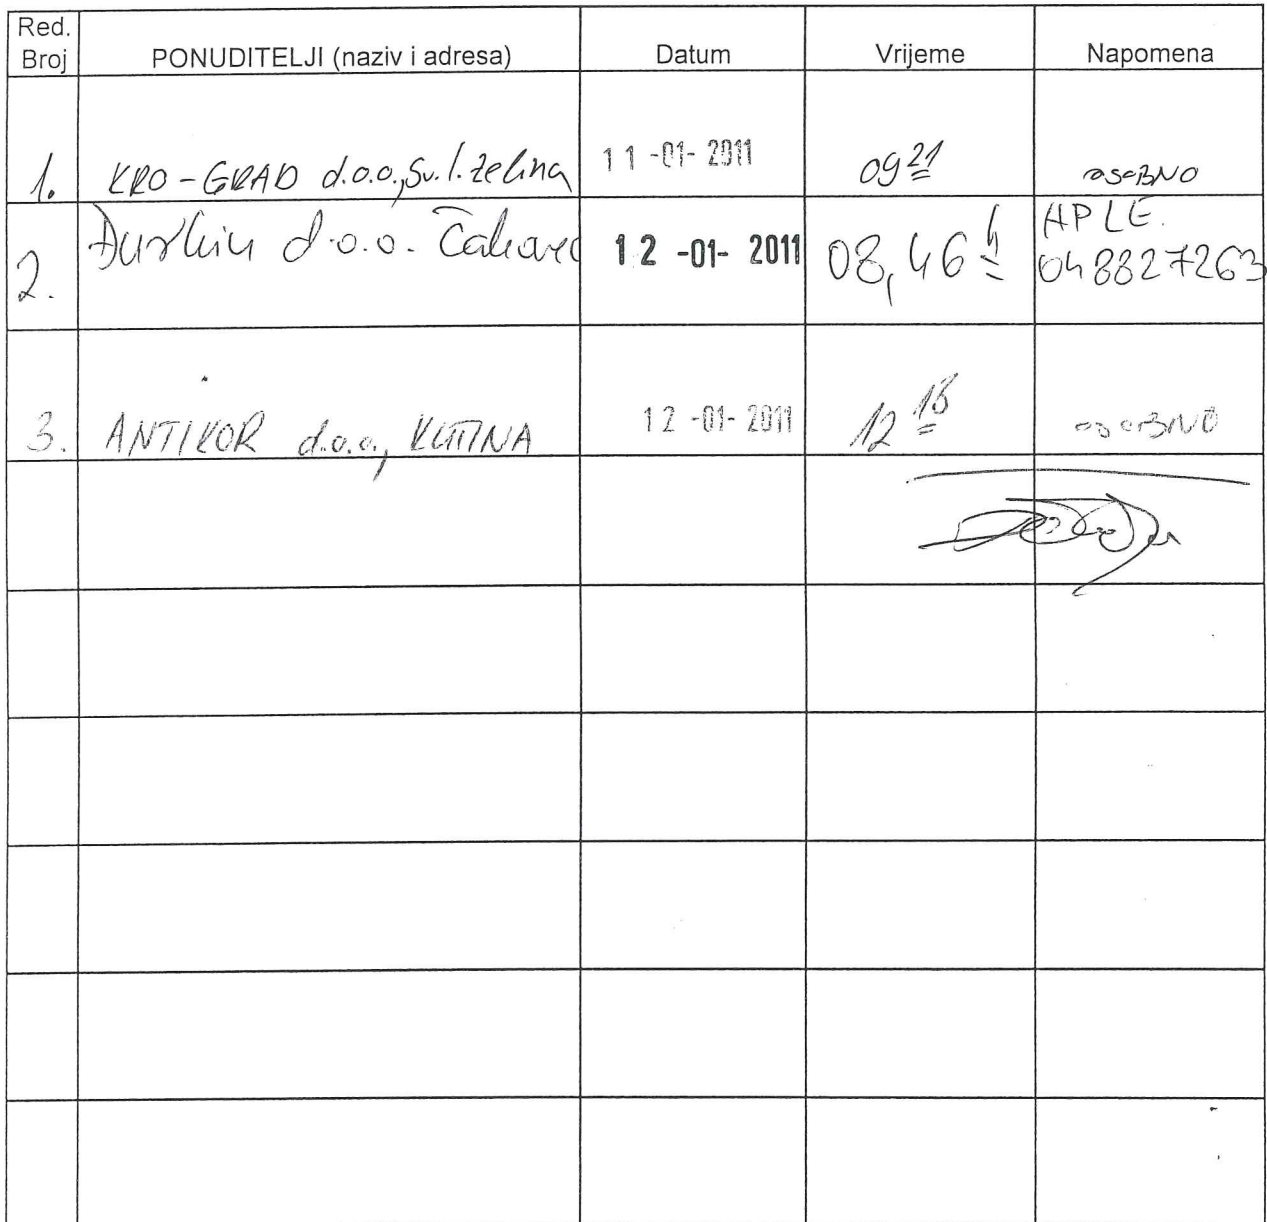 Red. Broj PONUDITELJI (naziv i adresa) Datum Vrijeme Napomena
1. KRO-GRAD d.o.o., Sv. I. Zelina 11-01-2011 09 21 osobno
2. Đurkin d.o.o. Čakovec 12-01-2011 08,46 h HPLE. 048827263
3. ANTIKOR d.o.o., KUTINA 12-01-2011 12 18 osobno